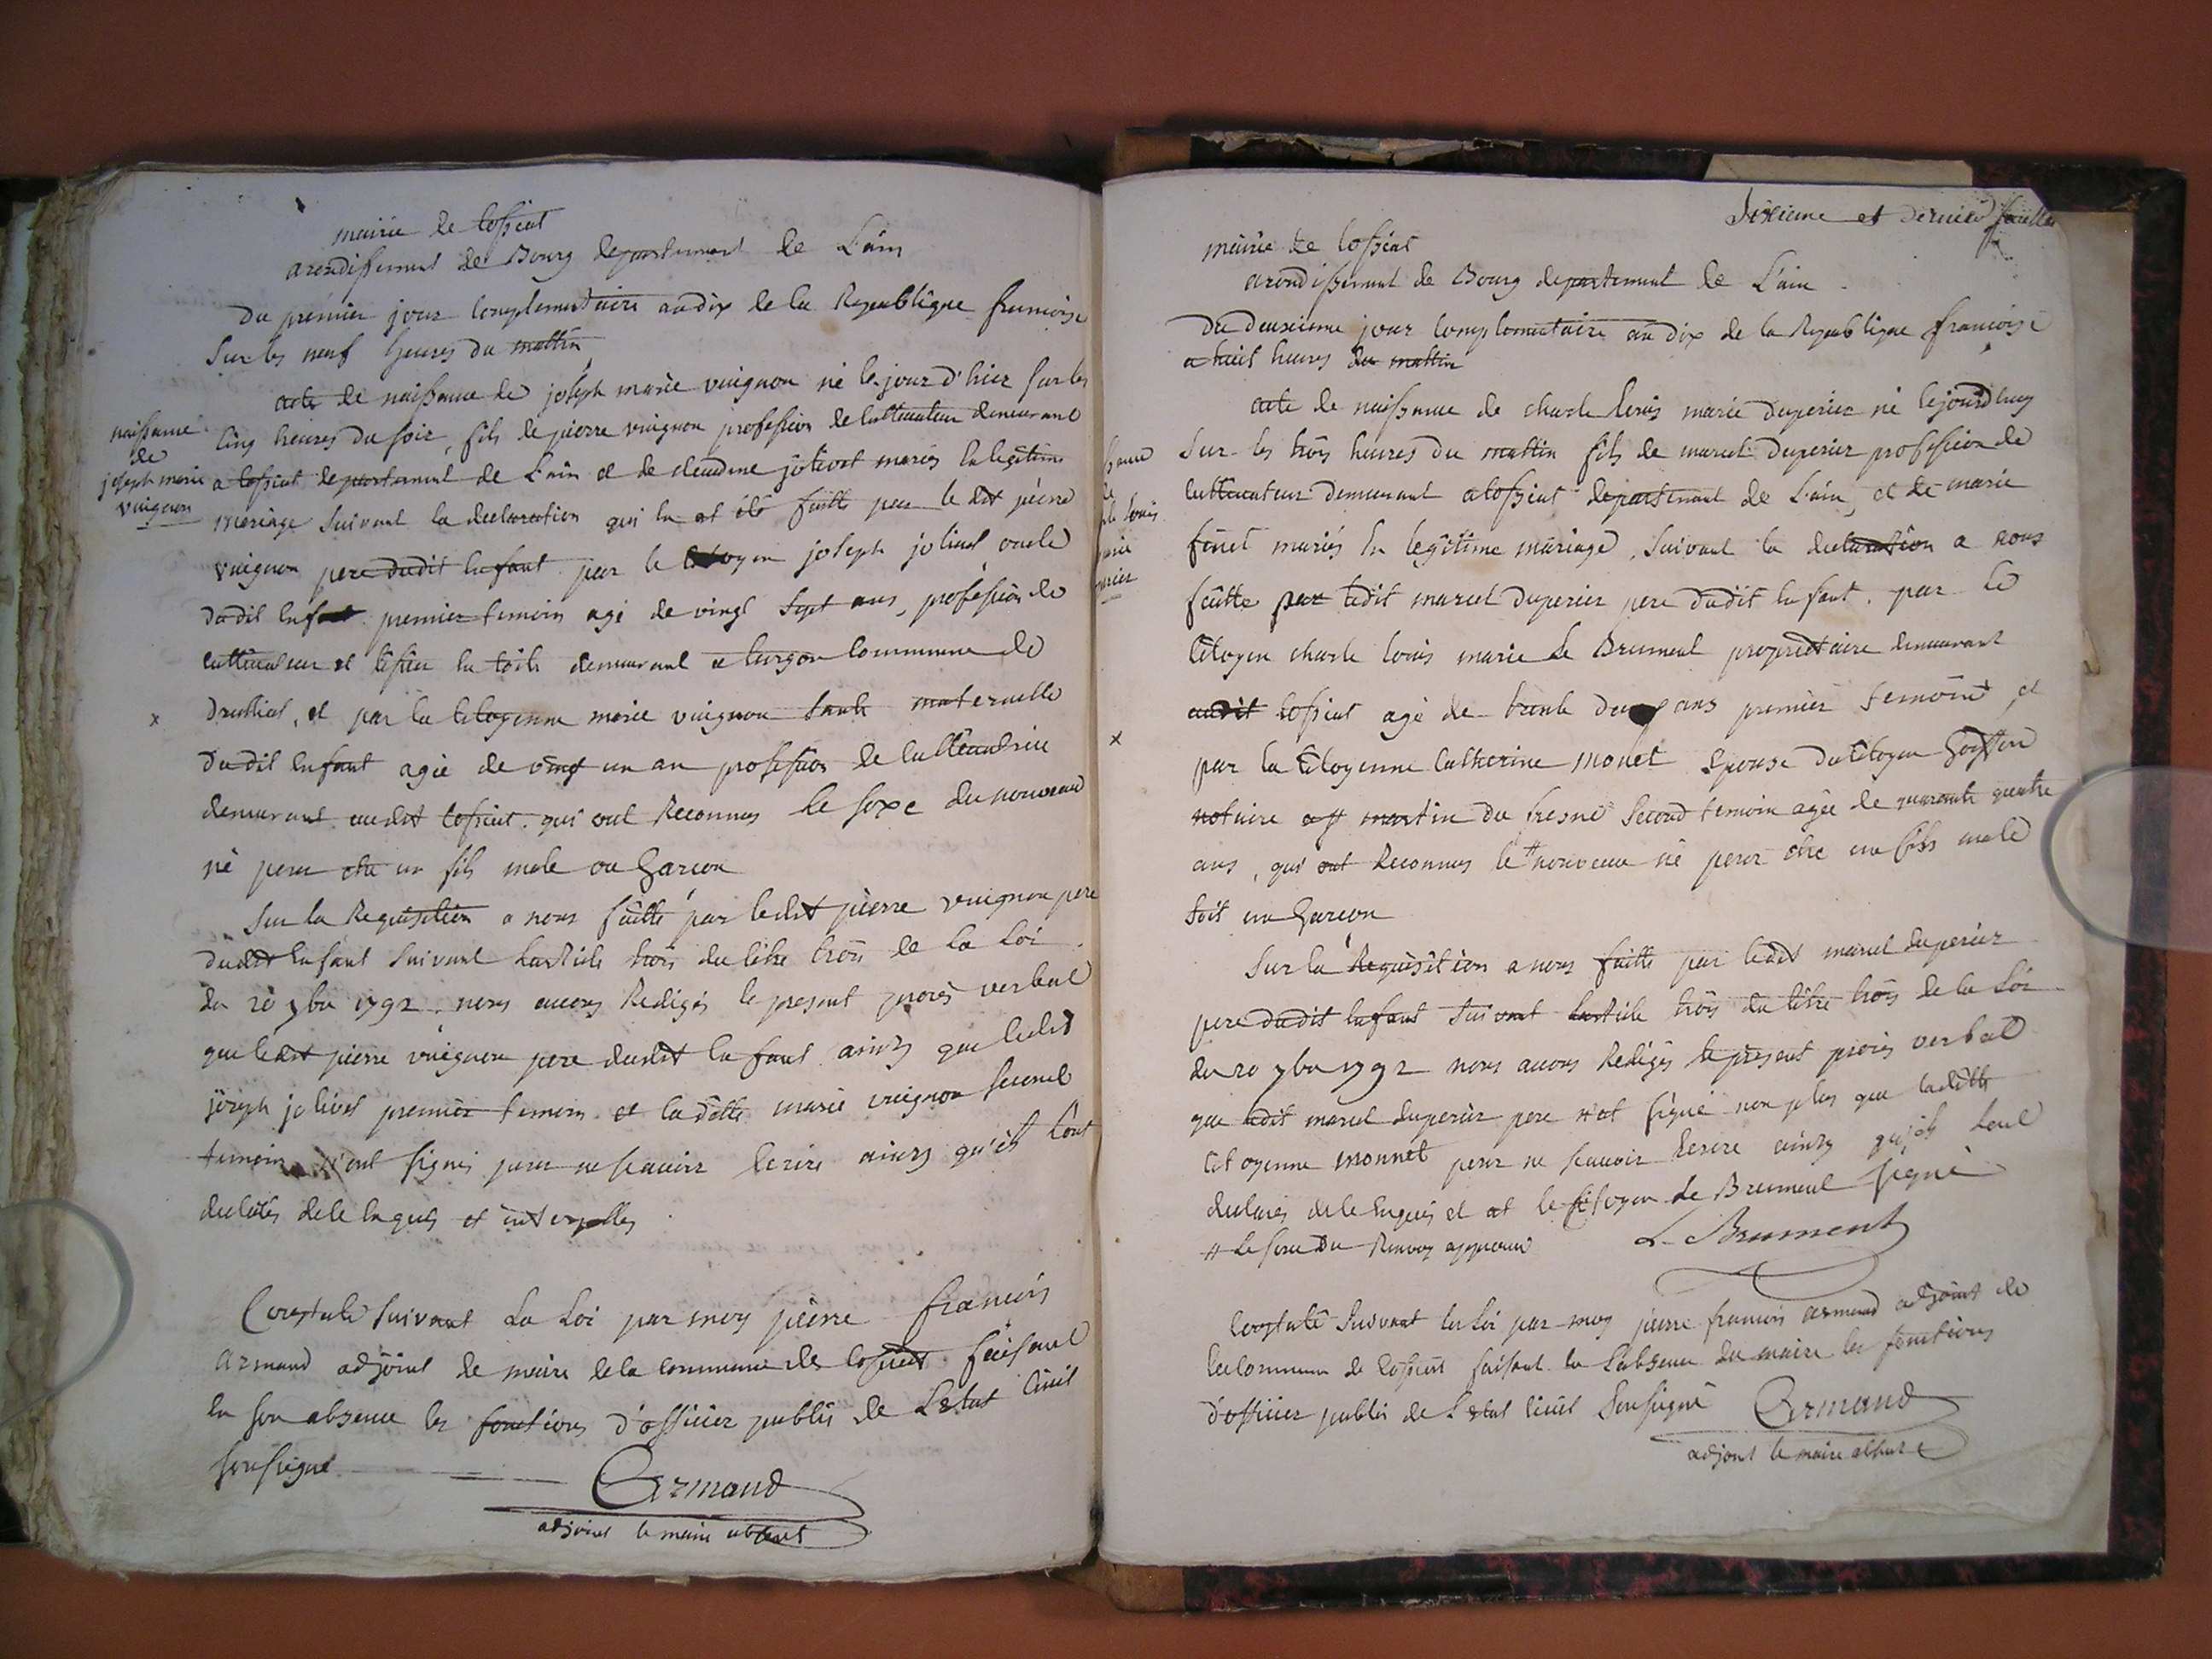 mairie de Cossiat
arondissement de Bourg departement de L'ain
du premier jour complementaire an dix de la Republique francoise
Sur les neuf heures du mattin
acte de naissance de joseph marie vuignon né le jour d'hier sur les
cinq heures du soir, fils de pierre vuignon profession de cultivateur demeurant
a Cossiat departement de L'ain et de claudine jolivet mariés en legitime
mariage suivant la declaration qui en at été faitte par le dit pierre
vuignon pere dudit enfant par le citoyen joseph jolivet oncle
dudit enfant premier temoin agé de vingt sept ans, profession de
cultivateur et tissieu en toile demeurant a commune de
druillat, et par la citoyenne marie vuignon tante maternelle
dudit enfant agée de vingt un an profession de cultivatrice
demeurant audit Cossiat qui ont Reconnus le sexe du nouveau
né pour etre un fils male ou Garcon
Sur la Requisition a nous faitte par ledit pierre vuignon pere
dudit enfant suivant L'article trois du titre trois de la Loi
du 20 7bre 1792. nous avons Redigés le present procès verbal
que ledit pierre vuignon pere dudit enfant ainsy que ledit
joseph jolivet premier temoin et la ditte marie vuignon second
temoin n'ont signés pour ne scavoir Ecrire ainsy qu'ils l'ont
declarés de le enquis et interpellés
Constaté suivant La Loi par moy pierre francois
armand adjoint de maire de la commune de Cossiat faisant
en son absence les fonctions d'officier public de L'Etat Civil
soussigné
Armand
adjoint le maire absent
naissance
de
joseph marie
vuignon
x
Sixieme et dernier feuillet
mairie de Cossiat
arondissement de Bourg departement de L'ain
du deuxieme jour complementaire an dix de la Republique francoise
a huit heures du mattin
acte de naissance de charle louis marie duperier né cejourdhuy
Sur les trois heures du mattin fils de marcel duperier profession de
cultivateur demeurant a Cossiat departement de L'ain, et de marie
finet mariés En legitime mariage, suivant la declaration a nous
faitte par ledit marcel duperier pere dudit enfant. par le
citoyen charle louis marie Le Brument proprietaire demeurant
audit Cossiat agé de trente deux ans premier temoin, et
par la citoyenne Catherine monet Epouse du citoyen
notaire a st martin du fresne Second temoin agée de quarante quatre
ans, qui ont Reconnus le # nouveau né pour etre un fils male
soit un Garcon
Sur la Requisition a nous faitte par ledit marcel duperier
pere dudit enfant suivant L'article trois du titre trois de la Loi
du 20 7bre 1792 nous avons Redigés le present procès verbal
que ledit marcel duperier pere n'at signé non plus que laditte
citoyenne monnet pour ne scavoir Ecrire ainsy
declarés de le Enquis et at le citoyen Le Brument signé
# le sexe du Renvoy approuvé
L. Brument
Constaté Suivant la Loi par moy pierre francois armand adjoint de
la Commune de Cossiat faisant en L'absence du maire les fonctions
d'officier public de L'Etat Civil Soussigné
Armand
adjoint le maire absent
x